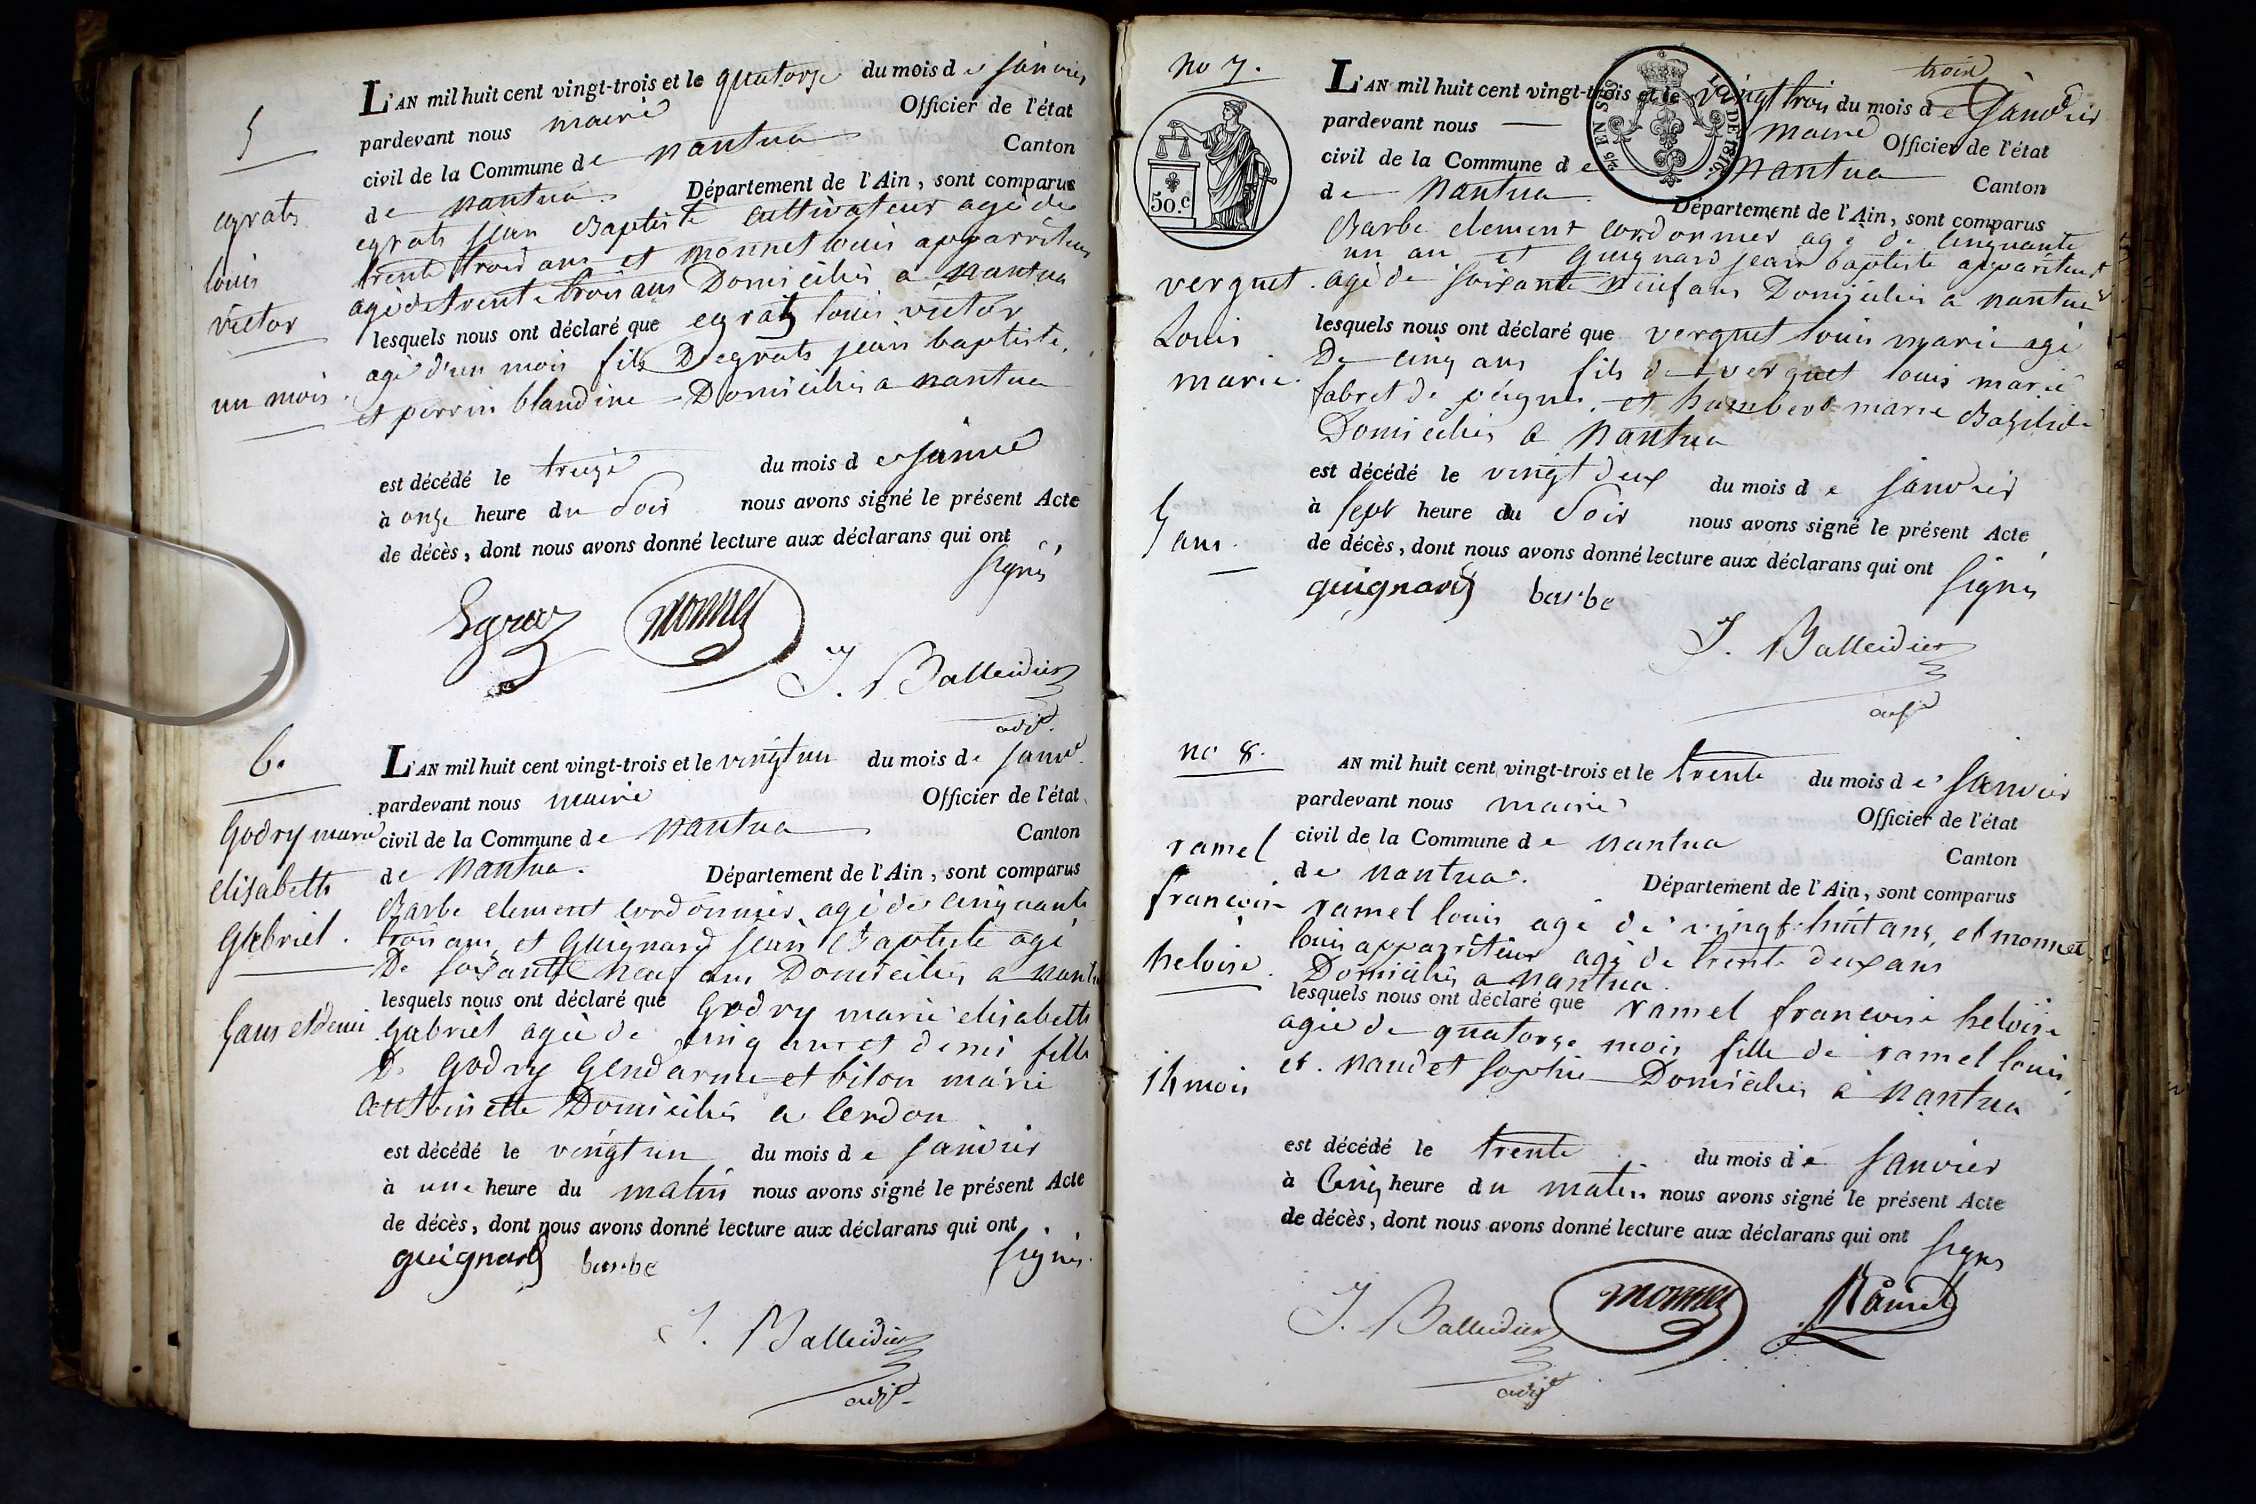 5
egrats
louis
victor
un mois.
L'AN mil huit cent vingt-trois et le quatorze du mois de janvier
pardevant nous maire Officier de l'état
civil de la Commune de nantua Canton
de nantua. Département de l'Ain, sont comparus
egrats jean Baptiste cultivateur agé de
trente trois ans et monnet louis apparriteur
agé de trente trois ans Domiciliés a nantua
lesquels nous ont déclaré que egrats louis victor
agé d'un mois fils D'egrats jean baptiste,
et perrin blandine Domiciliés a nantua
est décédé le treize du mois de janvié
à onze heure du Soir nous avons signé le présent Acte
de décès, dont nous avons donné lecture aux déclarans qui ont
signés
Egraz monnet
J. Balleidier
adjt.
6.
Godry marie
elisabeth
Gabriel.
5 ans et demi
L'AN mil huit cent vingt-trois et le vingt un du mois de janvr.
pardevant nous maire Officier de l'état
civil de la Commune de nantua Canton
de nantua. Département de l'Ain, sont comparus
Barbe clement cordonnier, agé de cinquante
trois ans, et Guignard jean Baptiste agé
De soixante neuf ans Domiciliés a nantua
lesquels nous ont déclaré que Godry marie elisabeth
Gabriel agée de cinq ans et demi fille
De Godry Gendarme et biton marie
antoinette Domiciliés a Cerdon
est décédé le vingt un du mois de janvier
à une heure du matin nous avons signé le présent Acte
de décès, dont nous avons donné lecture aux déclarans qui ont
signés.
guignard barbe
J. Balleidier
adjt.
no 7.
50.c
verguet.
Louis
marie.
5 ans.
trois
L'AN mil huit cent vingt-trois et le vingt trois du mois de Janvier
pardevant nous maire Officier de l'état
civil de la Commune de nantua Canton
de nantua. Département de l'Ain, sont comparus
EN SUS LOI DE 1816
Barbe clement cordonnier agé de cinquante
un an et Guignard jean baptiste appariteur
agé de soixante neuf ans Domiciliés a nantua
lesquels nous ont déclaré que verguet louis marie agé
De cinq ans fils de verguet louis marie
fabret de peigne, et humbert marie Bazilide
Domiciliés a nantua
est décédé le vingt deux du mois de janvier
à sept heure du Soir nous avons signé le présent Acte
de décès, dont nous avons donné lecture aux déclarans qui ont
signés
guignard barbe
J. Balleidier
adjt
no 8.
ramel
francoise
heloise.
14 mois
AN mil huit cent vingt-trois et le trente du mois de janvier
pardevant nous maire Officier de l'état
civil de la Commune de nantua Canton
de nantua. Département de l'Ain, sont comparus
ramel louis agé de vingt huit ans, et monnet
louis apparriteur agé de trente deux ans
Domiciliés a nantua.
lesquels nous ont déclaré que ramel francoise heloise
agée de quatorze mois fille de ramel louis
et naudet sophie Domiciliés à nantua
est décédé le trente du mois de janvier
à Cinq heure du matin nous avons signé le présent Acte
de décès, dont nous avons donné lecture aux déclarans qui ont
signés
J. Balleidier monnet Ramel
adjt